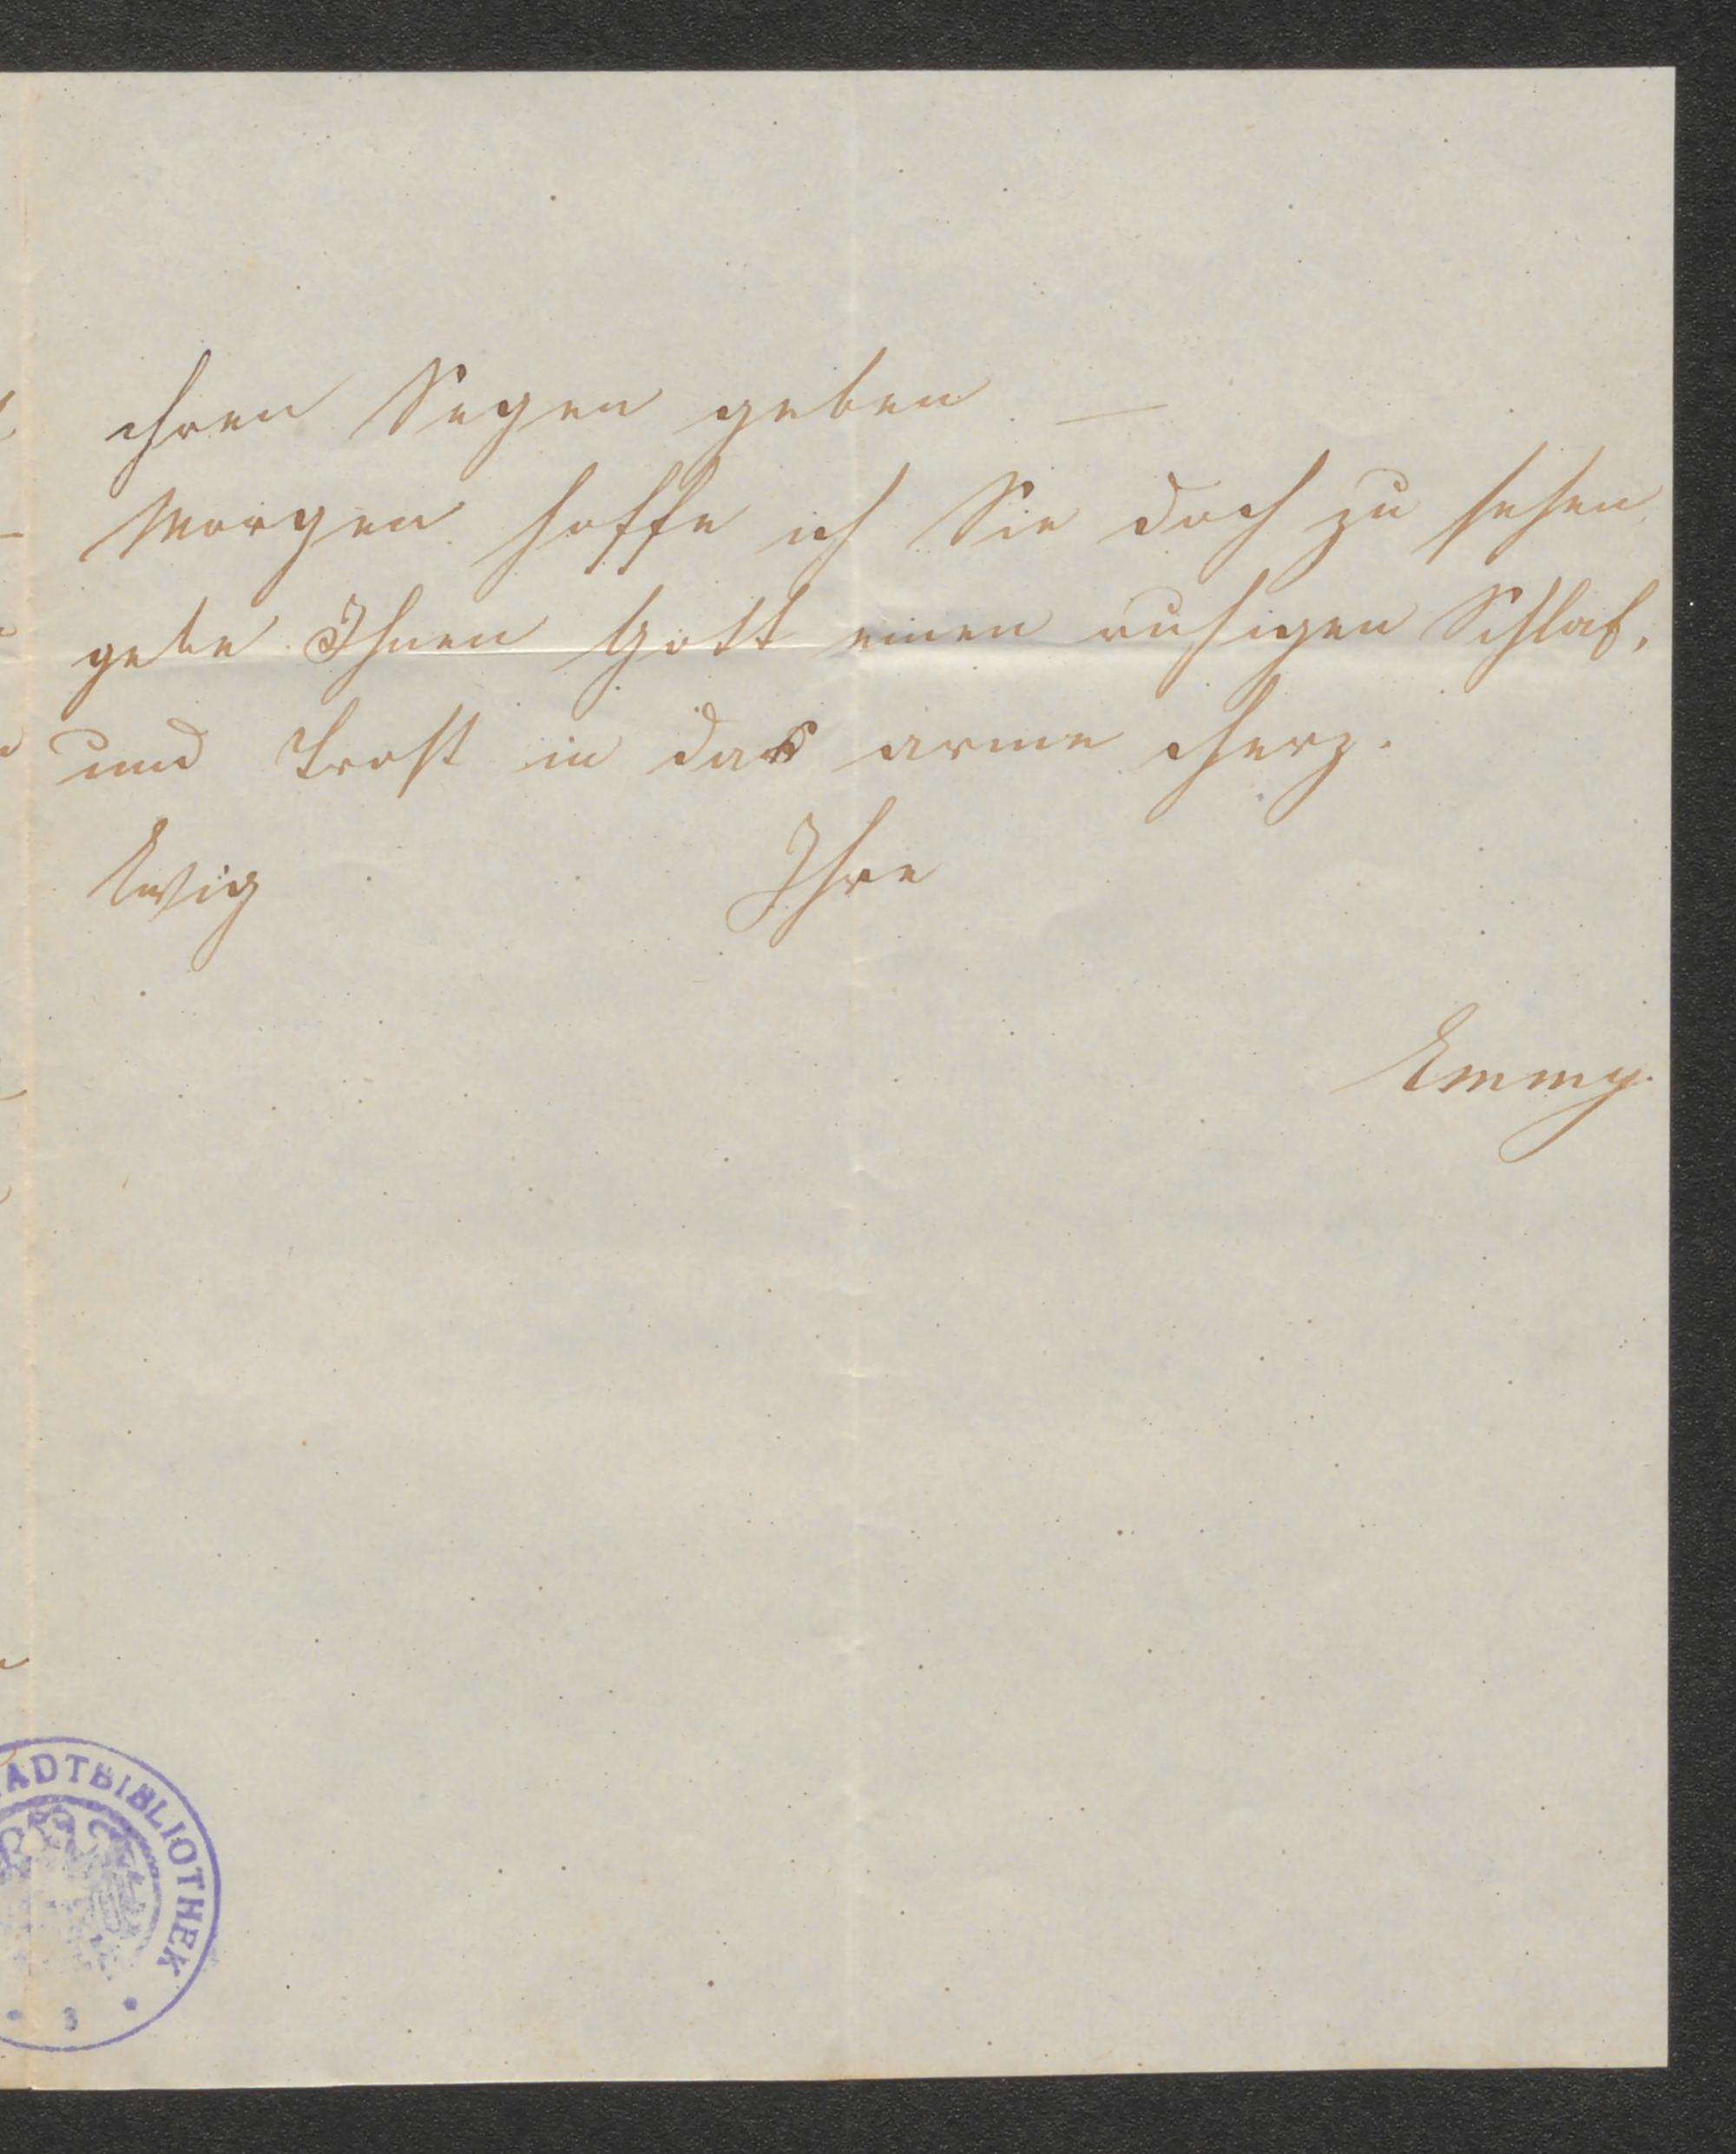 ihren Segen geben —
Morgen hoffe ich Sie doch zu sehen
gebe Ihnen Gott einen ruhigen Schlaf,
und Trost in das arme Herz.
Ewig Ihre
Emmy.
ADTBIBLIOTHEK